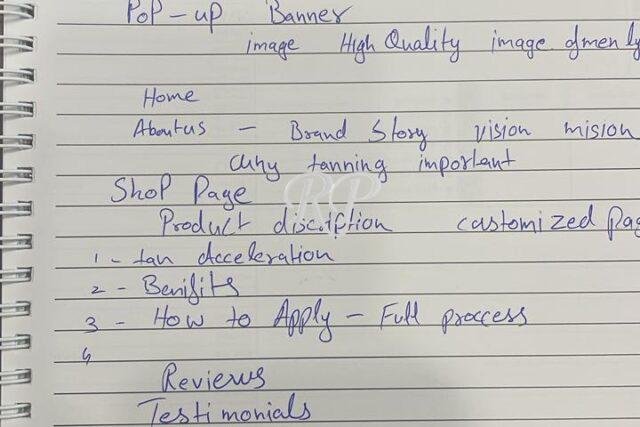 PoP-up Banner
image High Quality image of men ly
Home
About us - Brand Story vision mision
why tanning important
RP
Shop Page
Product discription castomized Pag
1 - tan Acceleration
2 - Benifits
3 - How to Apply - Full proccess
4
Reviews
Testimonials